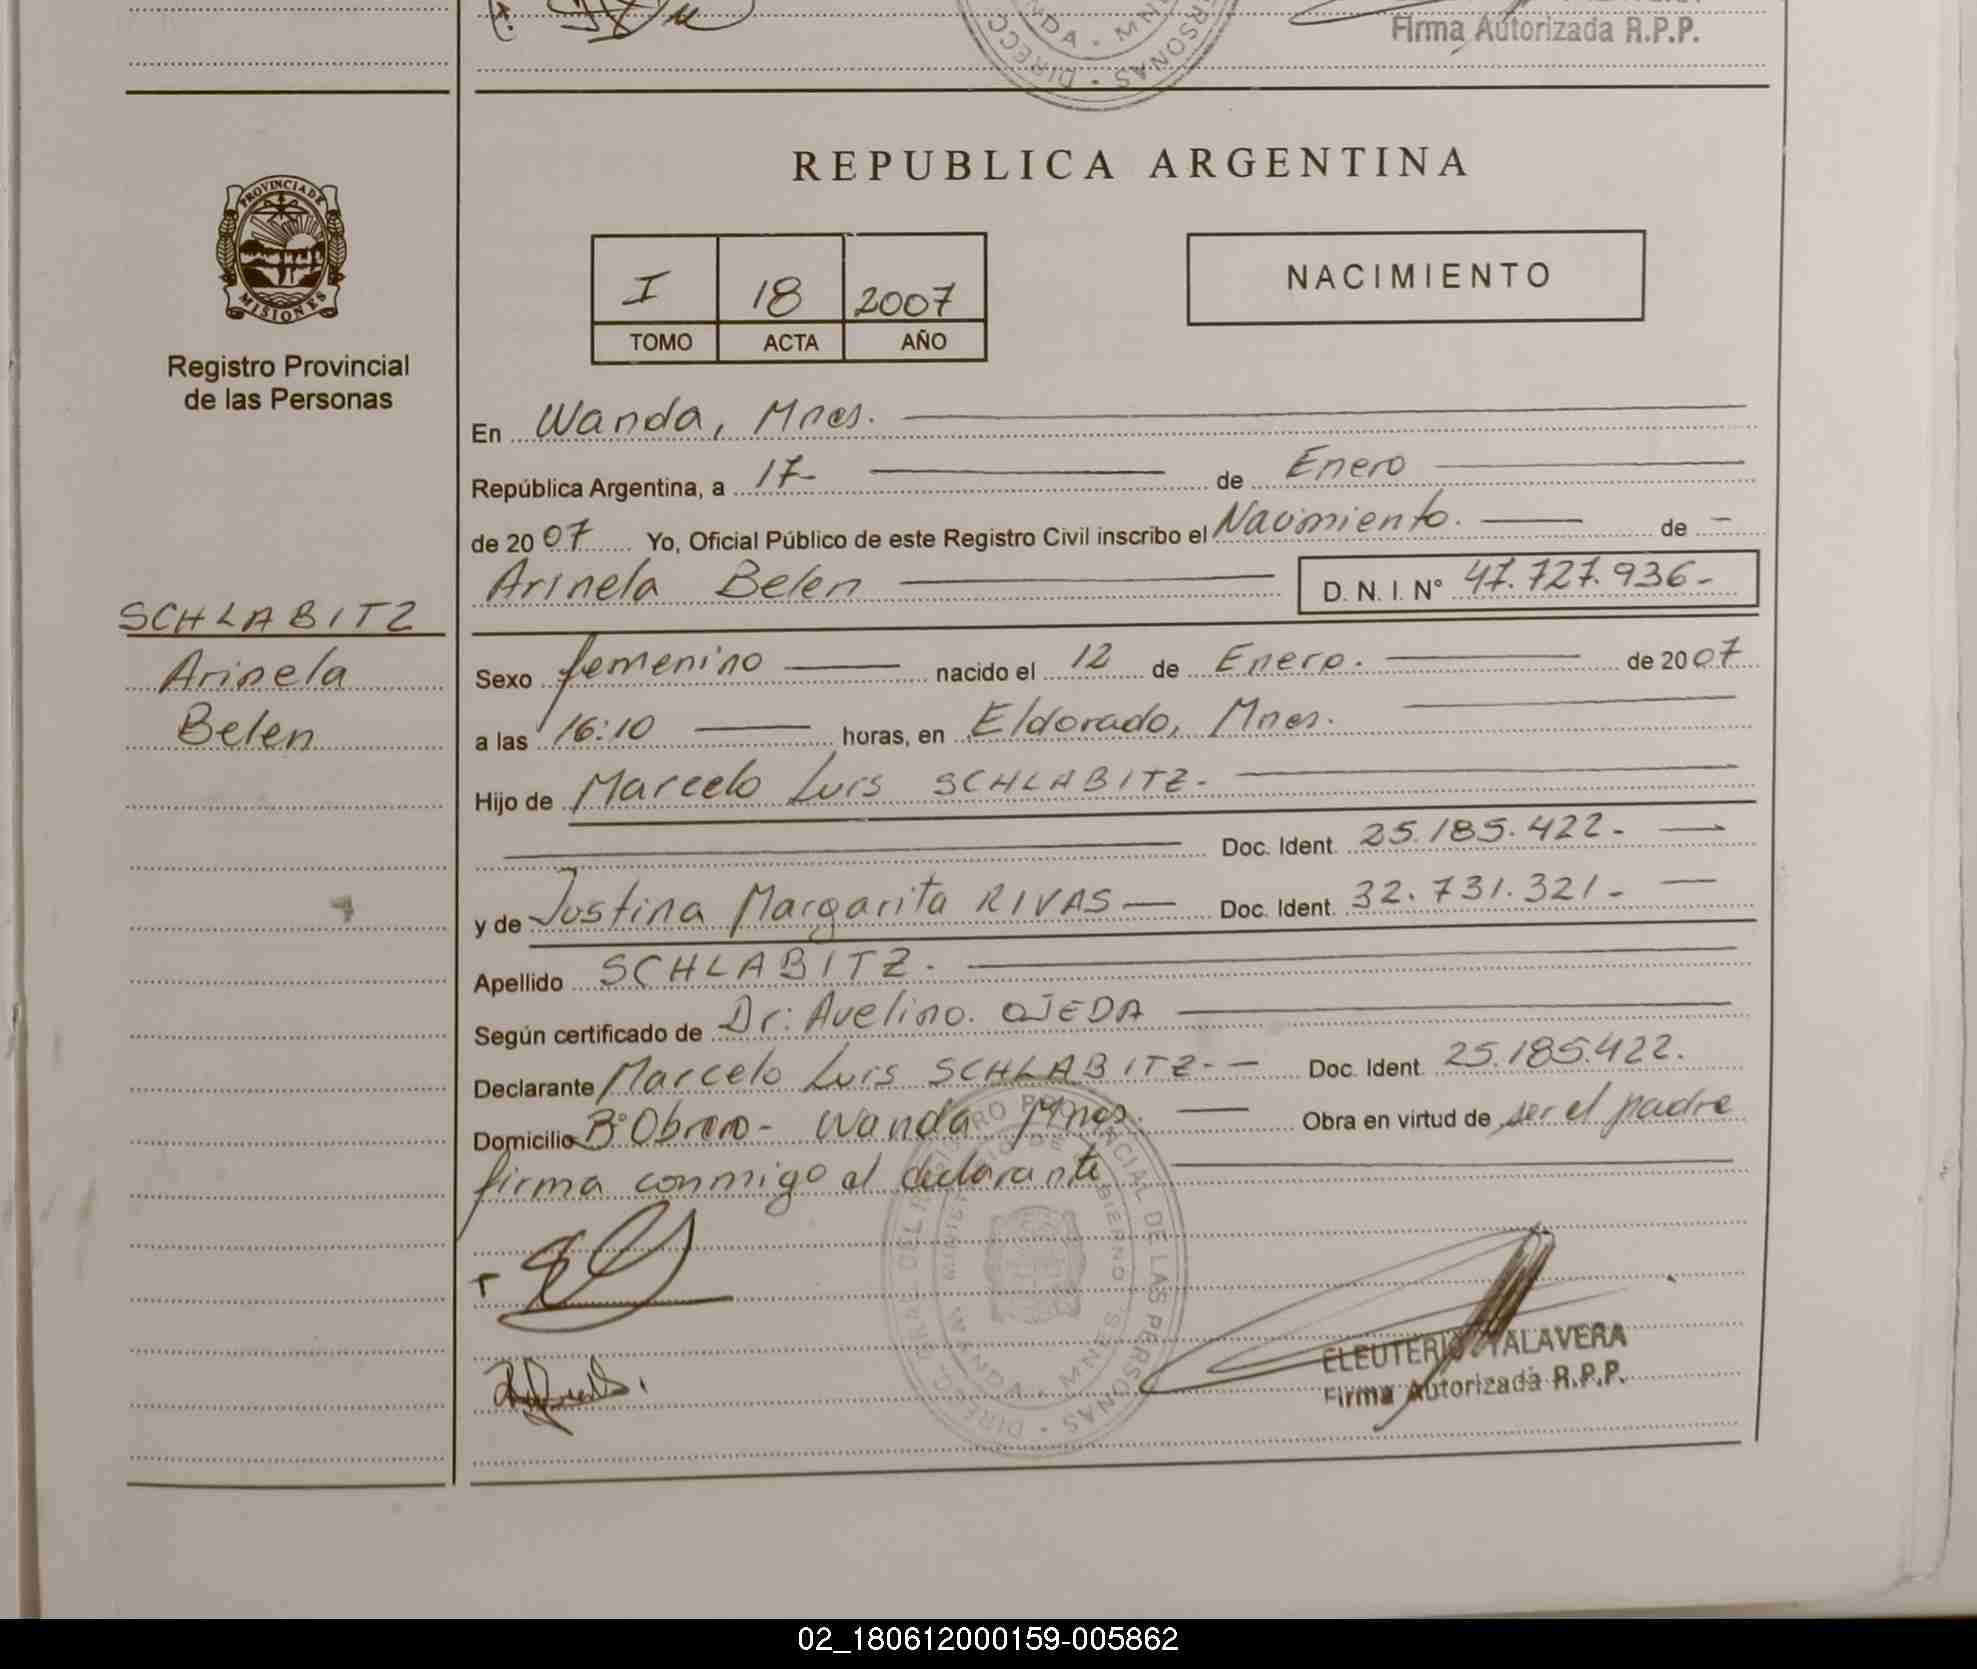 Firma Autorizada R.P.P.
REPUBLICA ARGENTINA
PROVINCIA DE
MISIONES
Registro Provincial
de las Personas
I 18 2007
TOMO ACTA AÑO
NACIMIENTO
En Wanda, Mnes.
República Argentina, a 17- de Enero
de 2007 Yo, Oficial Público de este Registro Civil inscribo el Nacimiento. de -
Arinela Belen D. N. I. N° 47.727.936-
SCHLABITZ
Arinela
Belen
Sexo femenino nacido el 12 de Enero. de 2007
a las 16:10 horas, en Eldorado, Mnes.
Hijo de Marcelo Luis SCHLABITZ-
Doc. Ident. 25.185.422-
y de Justina Margarita RIVAS Doc. Ident. 32.731.321-
Apellido SCHLABITZ.
Según certificado de Dr: Avelino. OJEDA
Declarante Marcelo Luis SCHLABITZ-- Doc. Ident. 25.185.422.
Domicilio B° Obrero- Wanda Mnes. Obra en virtud de ser el padre
firma conmigo el declarante
ELEUTERIO TALAVERA
Firma Autorizada R.P.P.
02_180612000159-005862